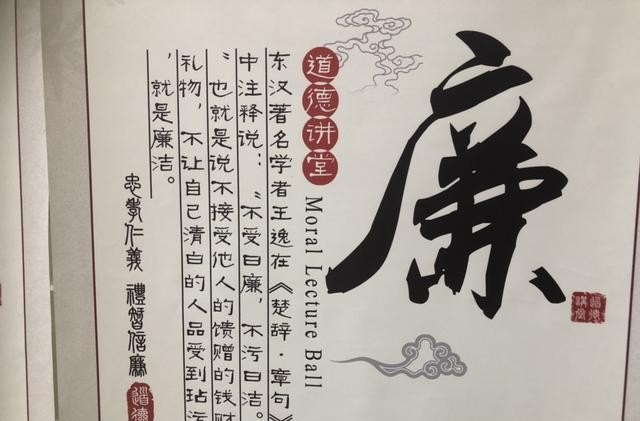 廉
道德
講堂
道德讲堂
Moral Lecture Ball
东汉著名学者王逸在《楚辞·章句》
中注释说：“不受曰廉，不污曰洁。
”也就是说不接受他人的馈赠的钱财
礼物，不让自己清白的人品受到玷污
，就是廉洁。
忠孝仁義 禮智信廉
道德